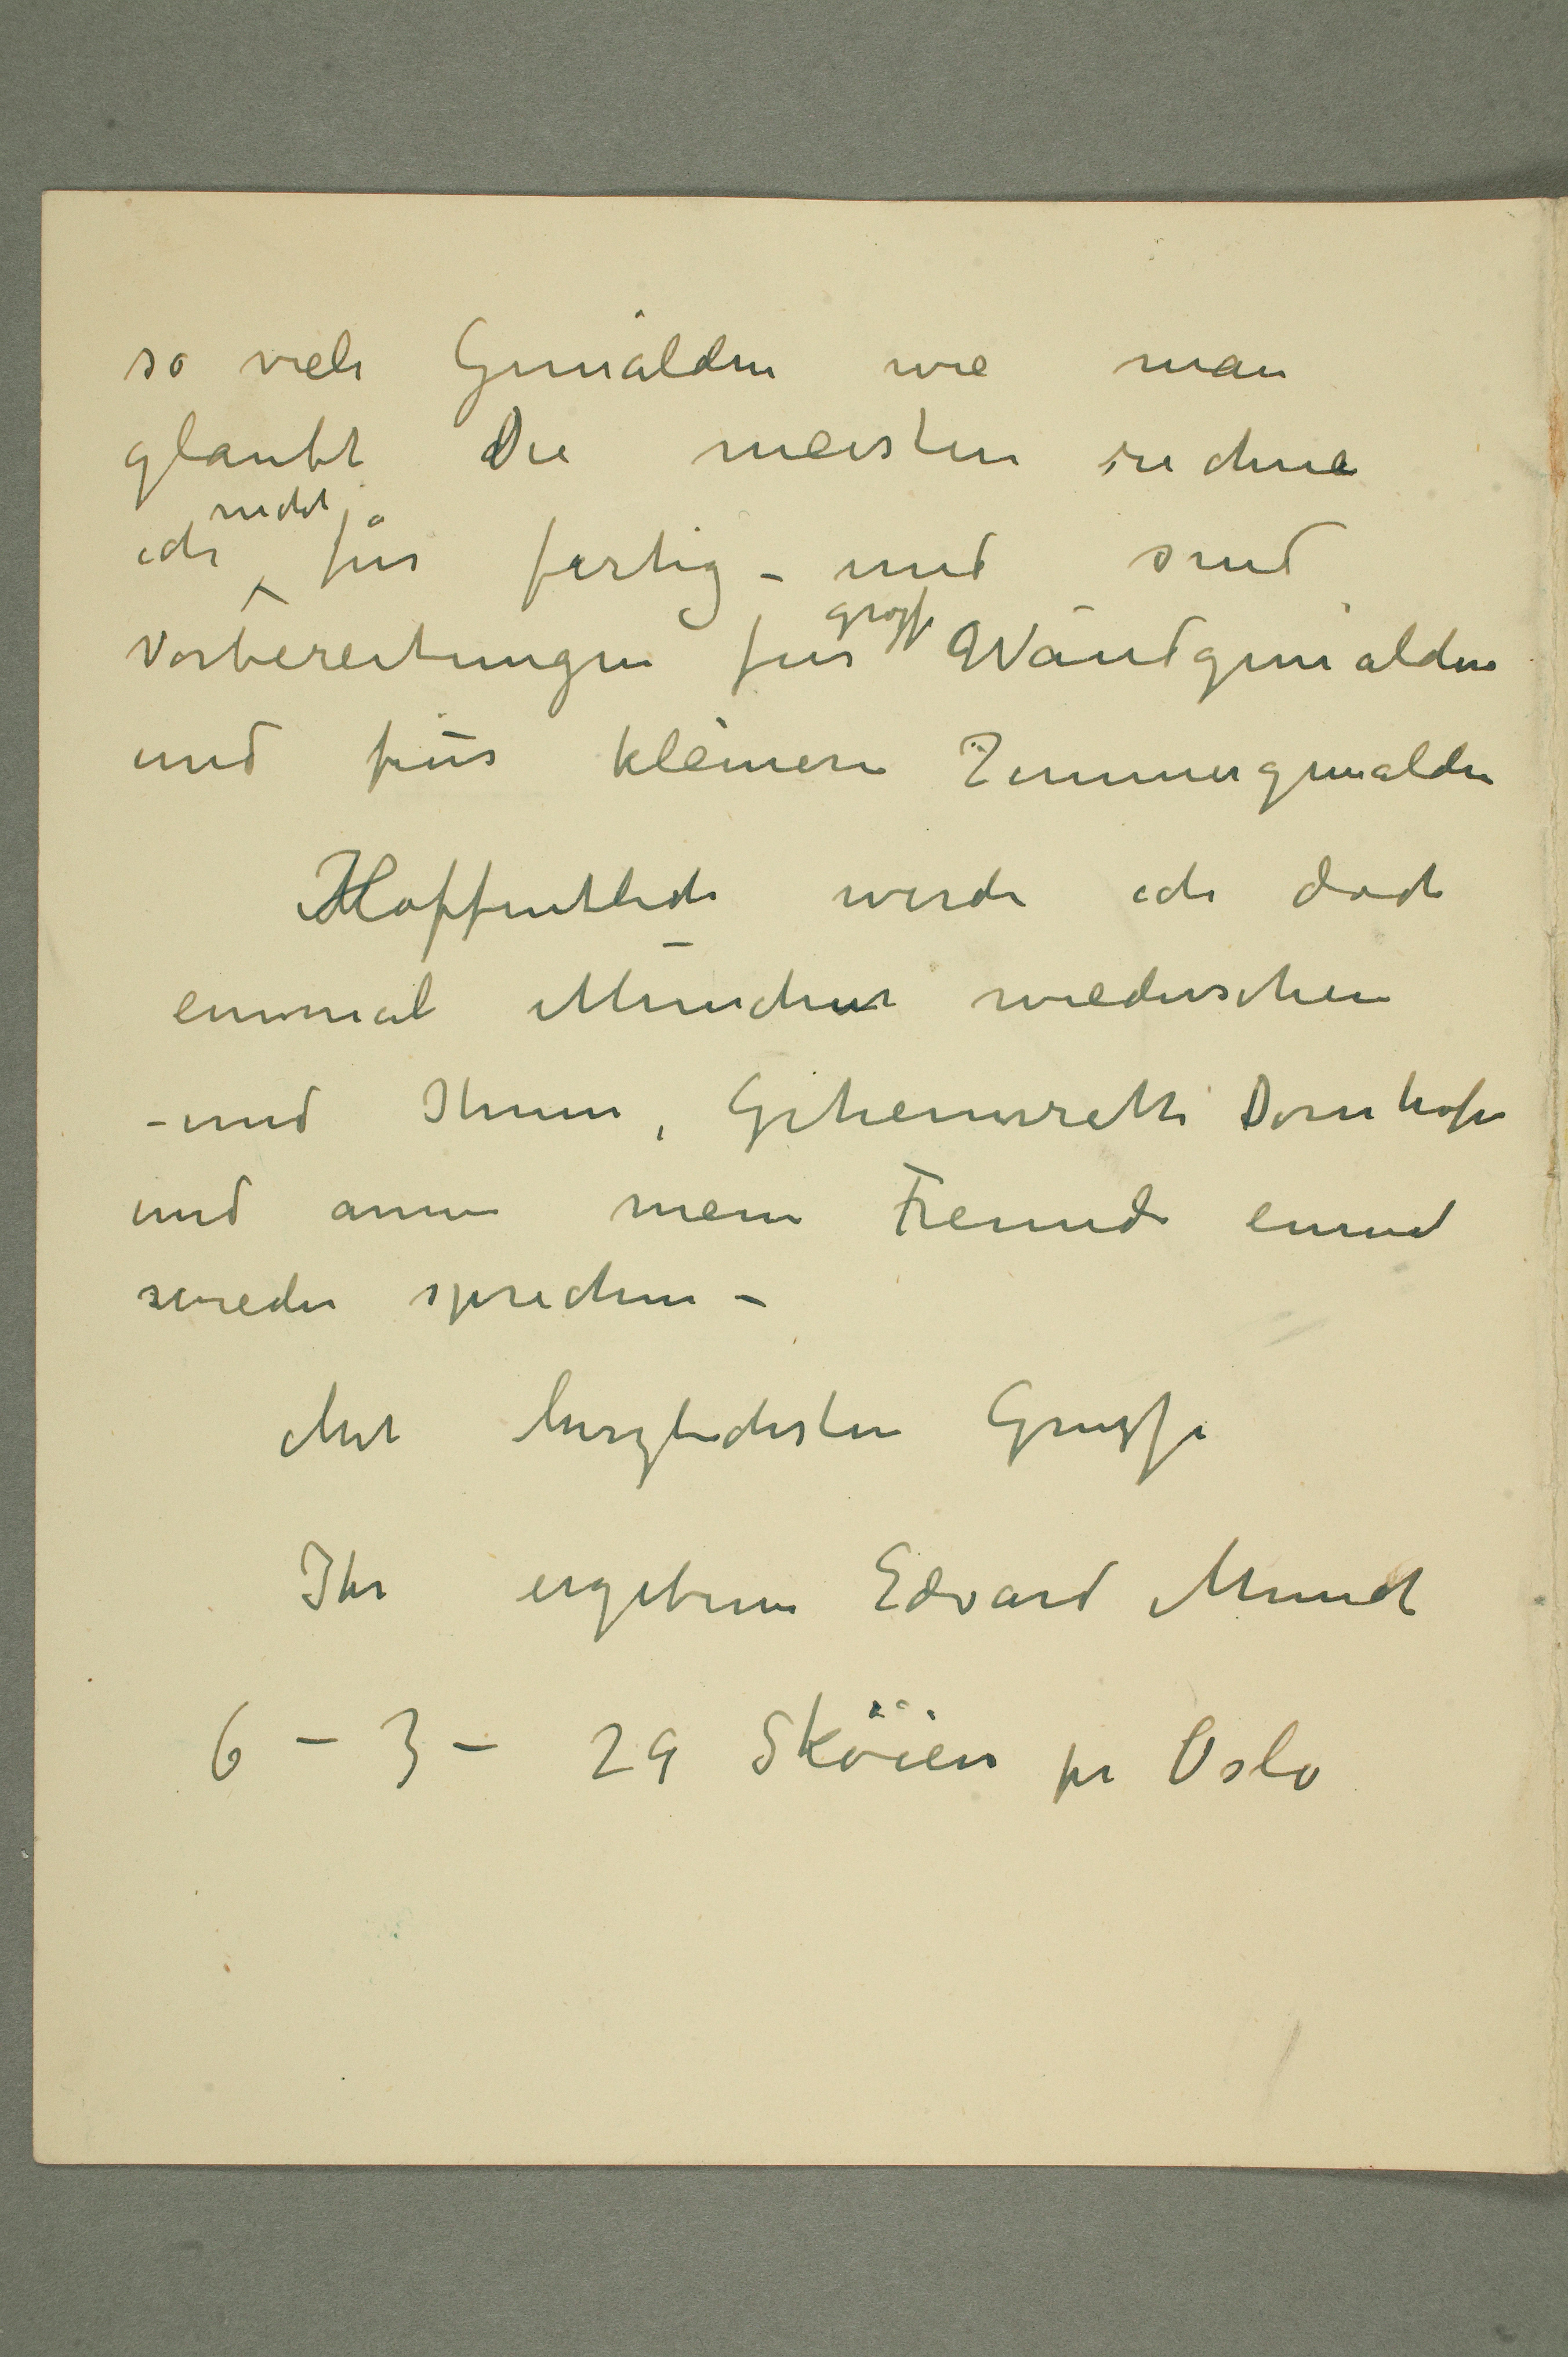 so viele Gemälden wie man
glaubt Die meisten rechne
ich nicht für fertig – und sind
Vorbereitungen für große Wandgemälden
und für kleinere Zimmergemälden
Hoffentlich werde ich doch
einmal München wiedersehen
– und Ihnen, Geheimrath Dörnhöfer
und meine Freunde einmal
wieder sprechen –
Mit herzlichsten Grusse
Ihr ergebene Edvard Munch
6 – 3 – 29 Sköien pr Oslo